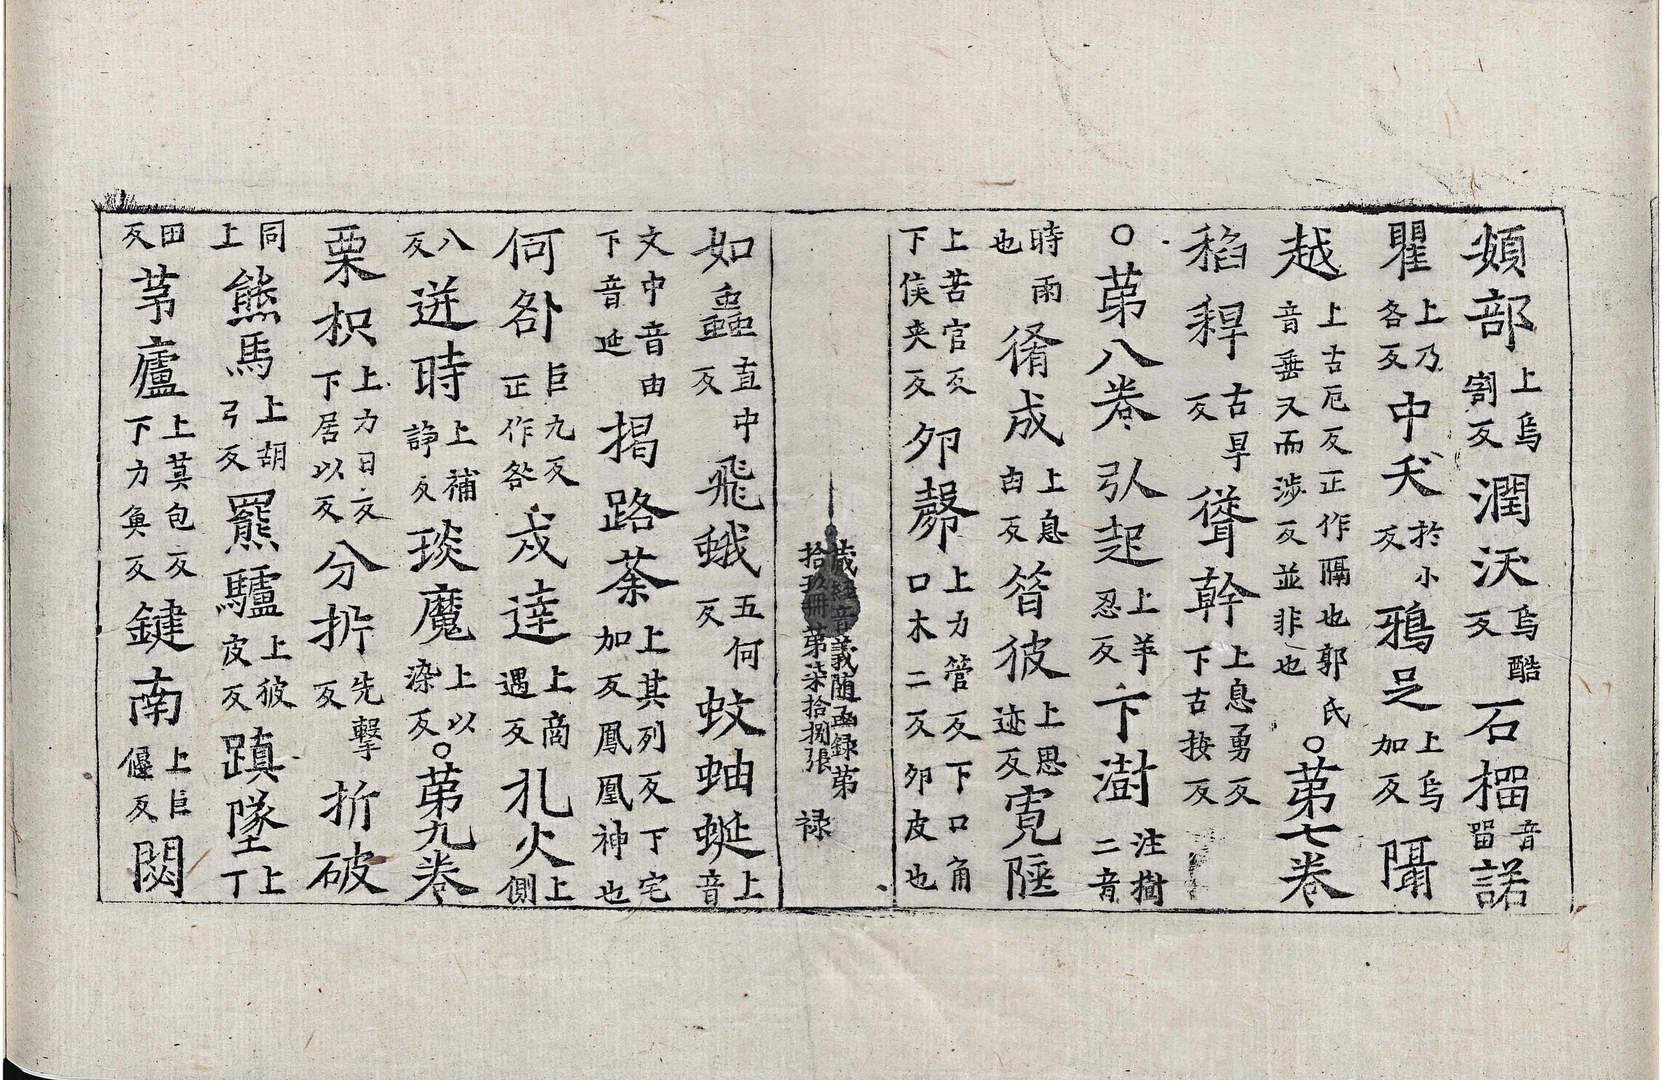 頞部上烏割反潤沃烏酷反石橊音畱諾
瞿上乃各反中夭於小反鴉足上烏加反隔
越上古厄反正作隔也郭氏音垂又而涉反並非也〇苐七卷
稻稈古旱反㹜幹上息勇反下古按反
〇苐八卷引起上羊忍反下澍注樹二音
時雨也脩成上息由反㫺彼上思迹反寬陿
上苦官反下侯夾反夘㲉上力管反下口角口木二反夘皮也
藏經音義随凾録苐拾玖冊苐柒拾捌張 禄
如蟲直中反飛蛾五何反蚊蚰蜒上音
文中音由下音延揭路荼上其列反下宅加反鳳凰神也
何咎巨九反正作咎戍達上商遇反札火上側
八反迸時上補諍反琰魔上以染反〇苐九卷
栗枳上力日反下居以反分㭊先擊反折破
同上熊馬上胡弓反羆驢上彼皮反蹎墜上丁
田反茅廬上莫包反下力魚反鍵南上巨偃反閦